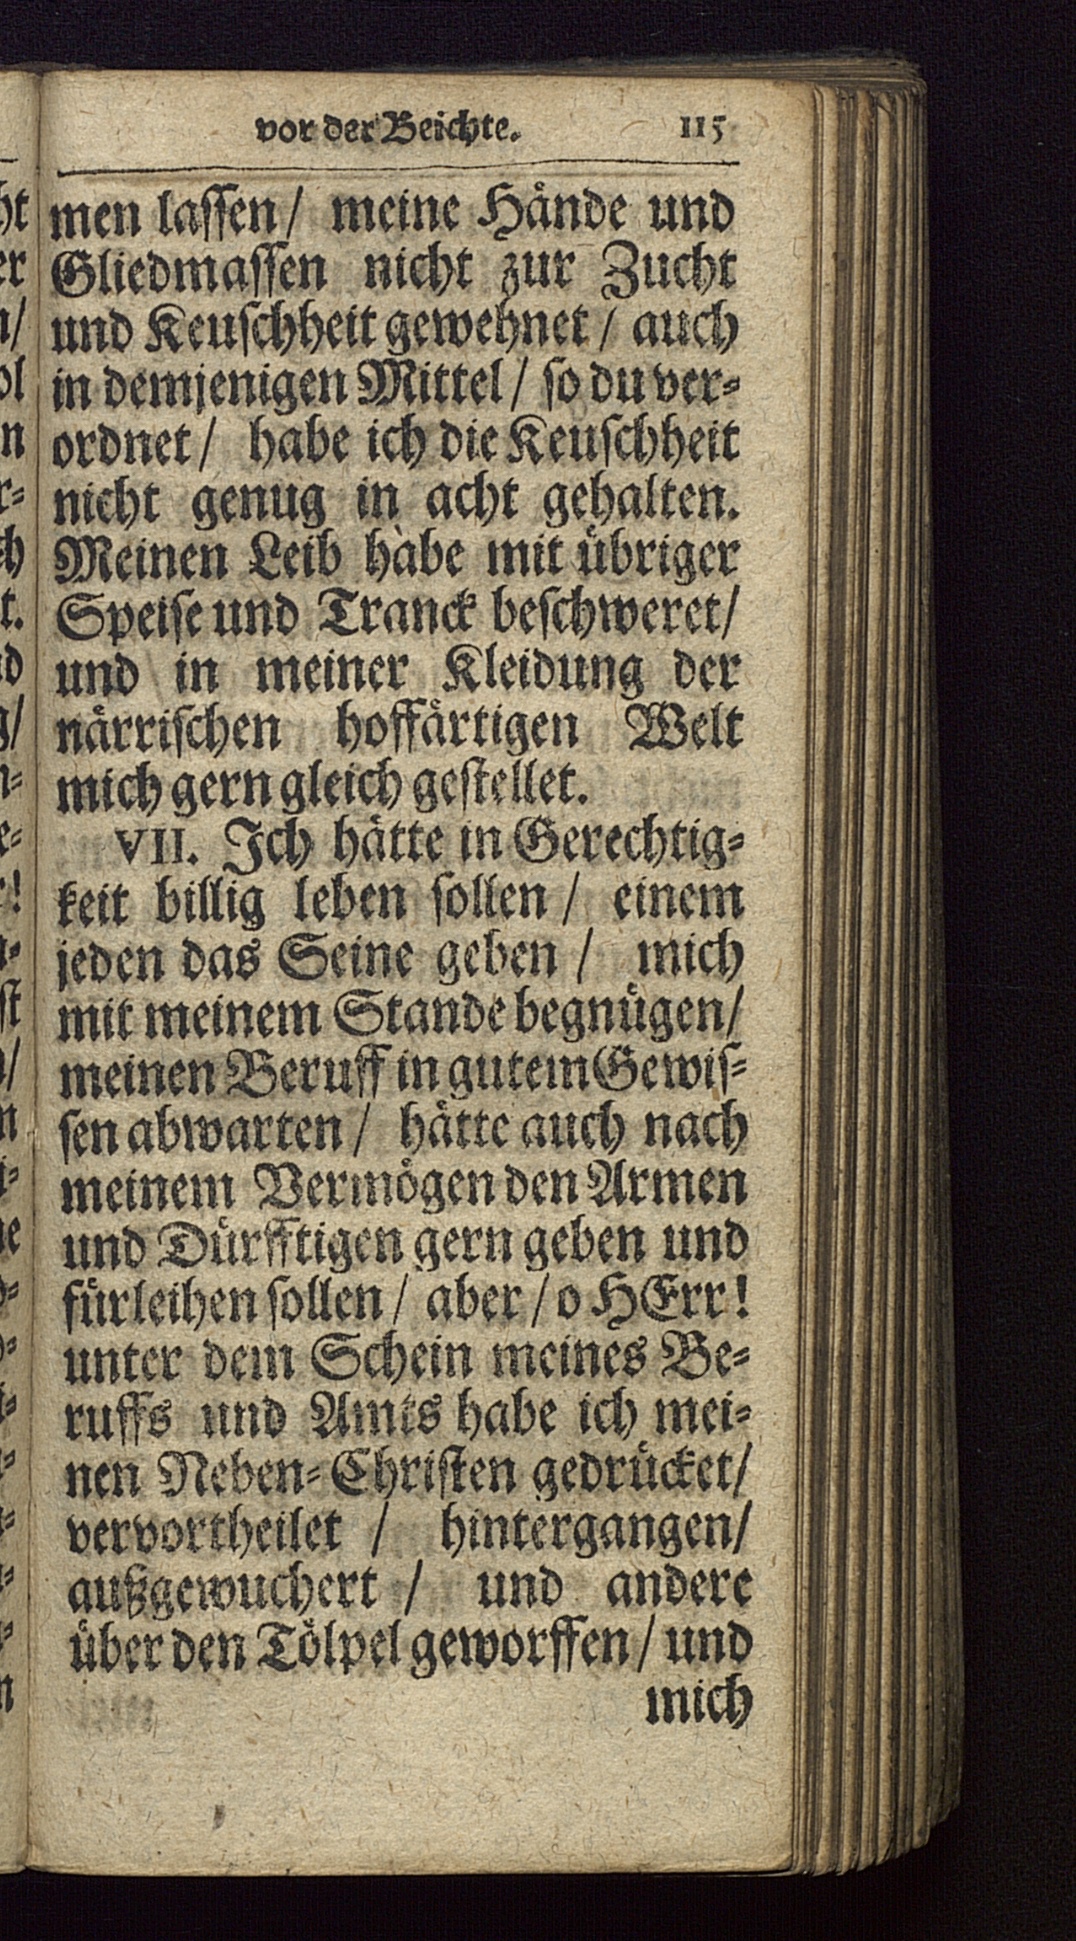 vor der Beichte. 115
men lassen/ meine Hände und
Gliedmassen nicht zur Zucht
und Keuschheit gewehnet / auch
in demjenigen Mittel / so du ver-
ordnet / habe ich die Keuschheit
nicht genug in acht gehalten.
Meinen Leib habe mit übriger
Speise und Tranck beschweret/
und in meiner Kleidung der
närrischen hoffärtigen Welt
mich gern gleich gestellet.
VII. Ich hätte in Gerechtig-
keit billig leben sollen / einem
jeden das Seine geben / mich
mit meinem Stande begnügen/
meinen Beruff in gutem Gewis-
sen abwarten / hätte auch nach
meinem Vermögen den Armen
und Dürfftigen gern geben und
fürleihen sollen / aber / o HErr!
unter dem Schein meines Be-
ruffs und Amts habe ich mei-
nen Neben-Christen gedrücket/
vervortheilet / hintergangen/
außgewuchert / und andere
über den Tölpel geworffen / und
mich